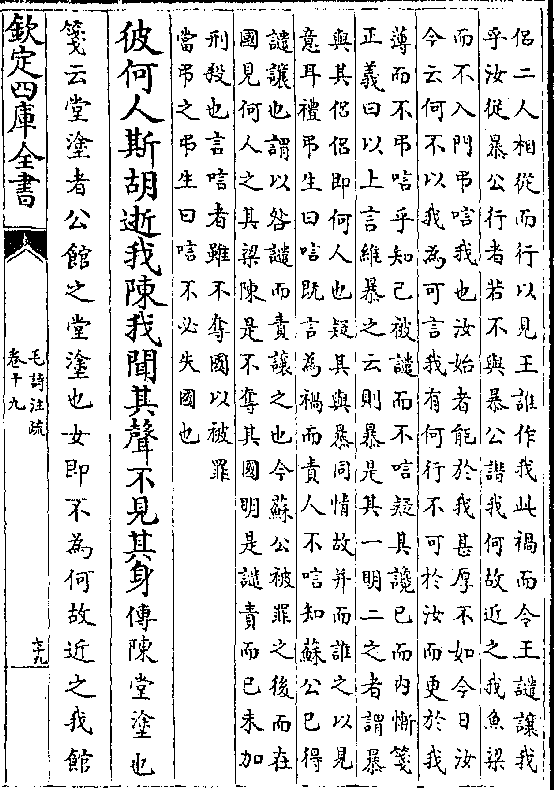 侣二人相從而行以見王誰作我此禍而令王譴讓我
乎汝從暴公行者若不與暴公譖我何故近之我魚梁
而不入門弔唁我也汝始者能於我甚厚不如今日汝
今云何不以我為可言我有何行不可於汝而更於我
薄而不弔唁乎知已被譴而不唁疑其讒已而内慚箋
正義曰以上言維暴之云則暴是其一明二之者謂暴
與其侣侣即何人也疑其與暴同情故并而誰之以見
意耳禮弔生曰唁既言為禍而責人不唁知蘇公已得
譴讓也謂以咎譴而責讓之也今蘇公被罪之後而在
國見何人之其梁陳是不奪其國明是譴責而已未加
刑殺也言唁者雖不奪國以被罪
當弔之弔生曰唁不必失國也
彼何人斯胡逝我陳我聞其聲不見其身傳陳堂塗也
箋云堂塗者公館之堂塗也女即不為何故近之我館
欽定四庫全書
毛詩注疏
卷十九
六十九